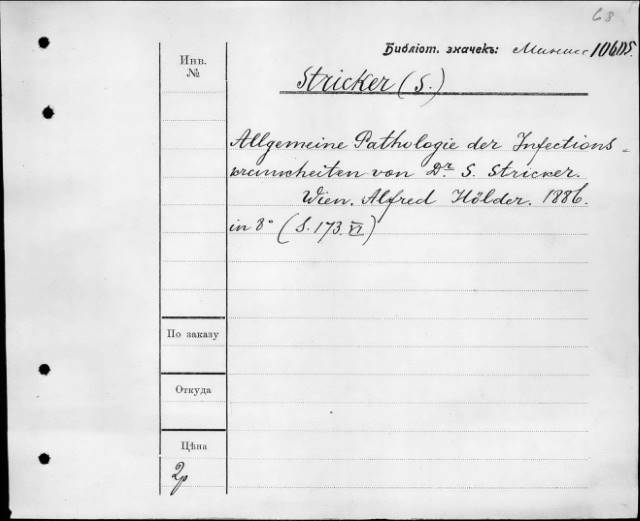 68
Библіот. значекъ: 106DS.
Инв.
№
Stricker (S.)
Allgemeine Pathologie der Infections-
krankheiten von Dr S. Stricker.
Wien. Alfred Hölder. 1886.
in 8° (S. 173. VI)
По заказу
Откуда
Цѣна
2р